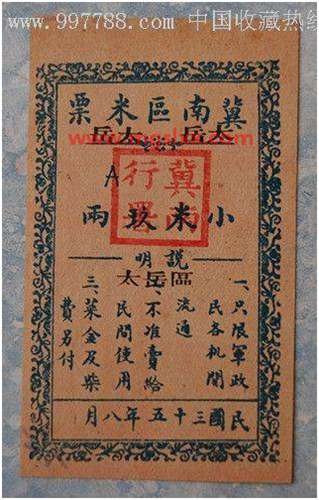 www.997788.com 中国收藏热线
冀南區米票
太岳 太岳
A
冀南行署
小米玖兩
說明
太岳區
一、只限軍政民各机関流通
二、不准賣給民間使用
三、菜金及柴費另付
民國三十五年八月